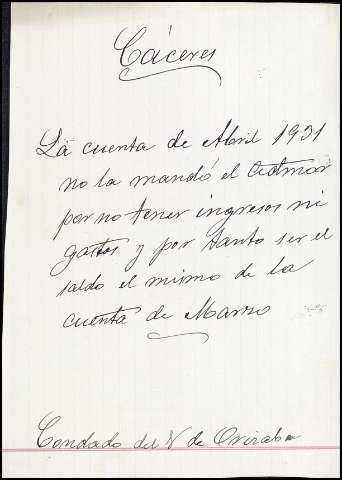 Cáceres
La cuenta de Abril 1931
no la mandó el Admor
por no tener ingresos ni
gastos y por tanto ser el
saldo el mismo de la
cuenta de Marzo
Condado del V de Orizaba